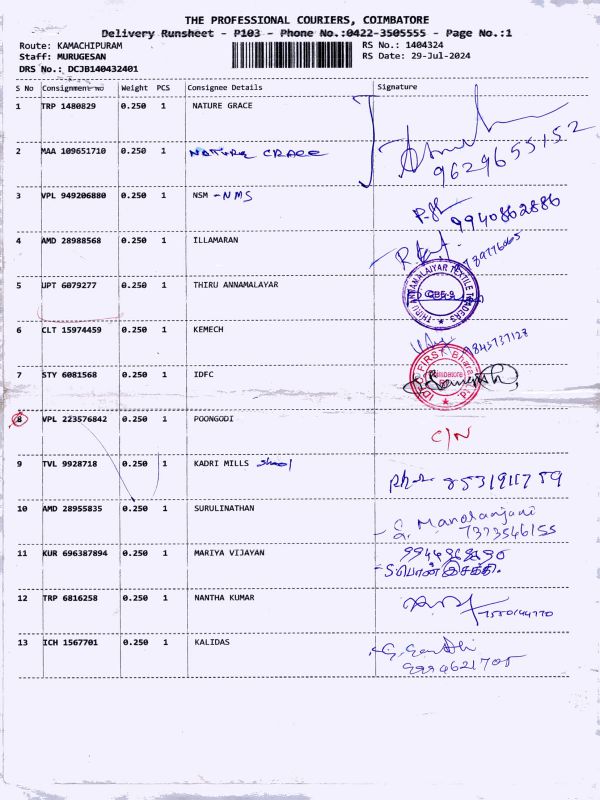 THE PROFESSIONAL COURIERS, COIMBATORE
Delivery Runsheet - P103 - Phone No.:0422-3505555 - Page No.:1
Route: KAMACHIPURAM
RS No.: 1404324
Staff: MURUGESAN
RS Date: 29-Jul-2024
DRS No.: DCJB140432401
S No Consignment No Weight PCS Consignee Details Signature
1 TRP 1480829 0.250 1 NATURE GRACE
2 MAA 109651710 0.250 1 NATURE GRACE
9629655152
3 VPL 949206880 0.250 1 NSM - NMS
9940862886
4 AMD 28988568 0.250 1 ILLAMARAN
5 UPT 6079277 0.250 1 THIRU ANNAMALAYAR
THIRU ANNAMALAIYAR TEXTILE TRADERS
6 CLT 15974459 0.250 1 KEMECH
9843737128
7 STY 6081568 0.250 1 IDFC
IDFC FIRST Bharat
8 VPL 223576842 0.250 1 POONGODI
C/N
9 TVL 9928718 0.250 1 KADRI MILLS School
10 AMD 28955835 0.250 1 SURULINATHAN
S. Manoranjani
7373546155
11 KUR 696387894 0.250 1 MARIYA VIJAYAN
12 TRP 6816258 0.250 1 NANTHA KUMAR
13 ICH 1567701 0.250 1 KALIDAS
G. Gandhi